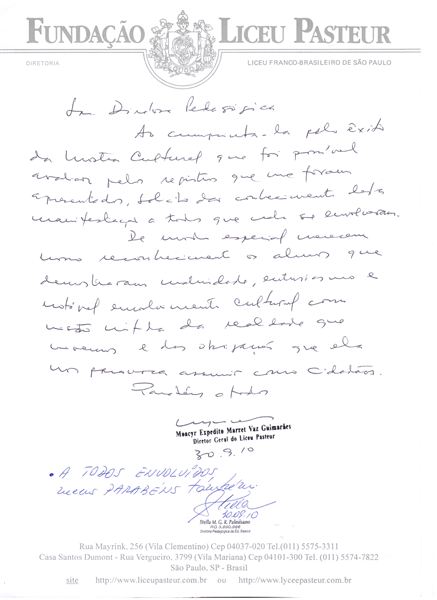 FUNDAÇÃO LICEU PASTEUR
DIRETORIA
LICEU FRANCO-BRASILEIRO DE SÃO PAULO
Sra Diretora Pedagógica
Ao cumprimenta-la pelo êxito
da Mostra Cultural que foi possível
avaliar pelos registros que me foram
apresentados, solicito dar conhecimento desta
manifestação a todos que nela se envolveram.
De modo especial merecem
nosso reconhecimento os alunos que
demonstraram maturidade, entusiasmo e
notável envolvimento cultural com
visão nítida da realidade que
vivemos e das obrigações que ela
nos assumir como cidadãos.
Parabéns a todos
Moacyr Expedito Marret Vaz Guimarães
Diretor Geral do Liceu Pasteur
30.9.10
• A TODOS ENVOLVIDOS
meus PARABÉNS também!
Stella
30.09.10
Stella M. G. K. Palesisano
Rua Mayrink, 256 (Vila Clementino) Cep 04037-020 Tel.(011) 5575-3311
Casa Santos Dumont - Rua Vergueiro, 3799 (Vila Mariana) Cep 04101-300 Tel. (011) 5574-7822
São Paulo, SP - Brasil
site http://www.liceupasteur.com.br ou http://www.lyceepasteur.com.br